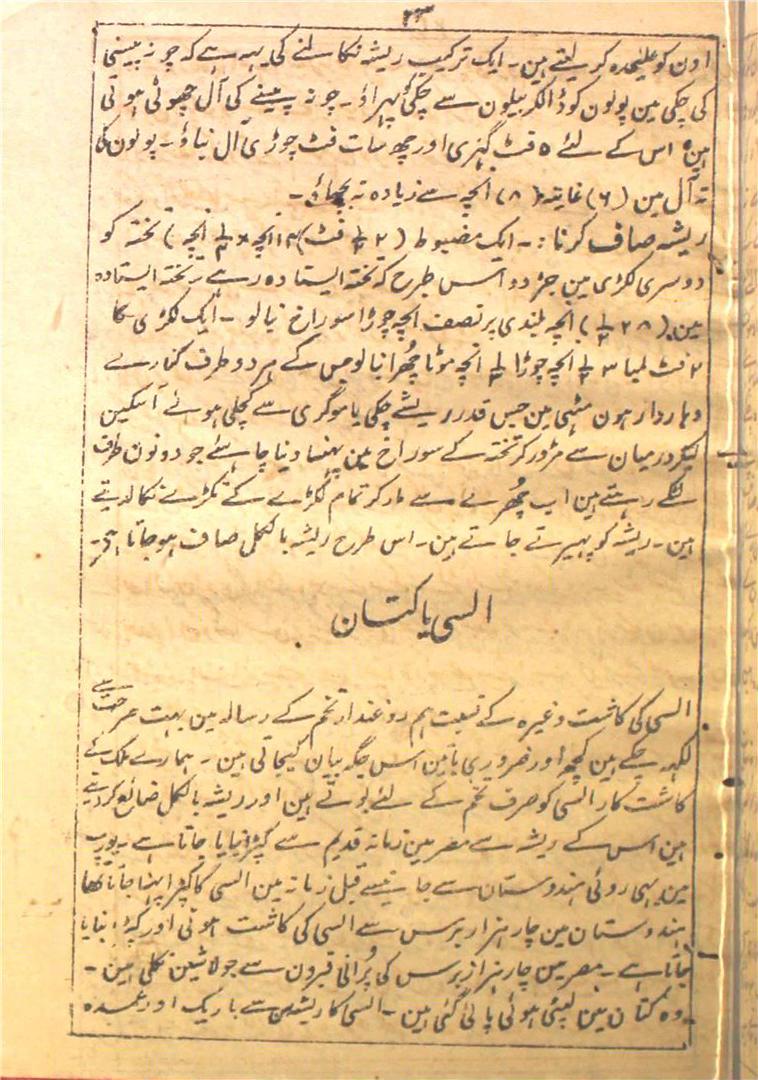 ۲۳
اون کو علیحدہ کر لیتے ہین۔ ایک ترکیب ریشہ نکالنے کی یہہ ہے کہ چونہ پیسنی
کی چکی مین پولون کو ڈالکر بیلون سے چکی کو پہراؤ۔ چونہ پیسنے کی آل چھوٹی ہوتی
ہین اس کے لئے ۵ فٹ گہری اور چھ سات فٹ چوڑی آل بناؤ۔ پولون کا
تہ آل مین (۶) غایتہ (۸) انچہ سے زیادہ نہ بچھاؤ۔
ریشہ صاف کرنا:۔ ایک مضبوط (۲ ½ فٹ) ۱۴ انچہ × ½ انچہ) تختہ کو
دوسری لکڑی مین جڑ دو اس طرح کہ تختہ ایستادہ رہے۔ تختہ ایستادہ
مین (۲۸ ½) انچہ بلندی پر نصف انچہ چوڑا سوراخ بنا لو۔ ایک لکڑی کا
۲ فٹ لمبا ۳ ½ انچہ چوڑا ½ انچہ موٹا چُھرا بنا لو جس کے ہر دو طرف کنارے
دہاردار ہون مٹھی مین جس قدر ریشے چکی یا موگری سے کچلی ہوئے آسکین
لیکر درمیان سے مڑور کر تختہ کے سوراخ مین پہنسا دینا چاہئے جو دونون طرف
لٹکے رہتے ہین اب چُھرے سے مار کر تمام لکڑے کے ٹکڑے نکالدیتے
ہین۔ ریشہ کو پہیرتے جاتے ہین۔ اس طرح ریشہ بالکل صاف ہوجاتا ہی۔
السی یا کتان
السی کی کاشت وغیرہ کے نسبت ہم روغندار تخم کے رسالہ مین بہت صراحت سے
لکہہ چکے ہین کچھ اور ضروری باتین اس جگہ بیان کیجاتی ہین۔ ہمارے ملک کے
کاشت کار السی کو صرف تخم کے لئے بوتے ہین اور ریشہ بالکل ضائع کردیتے
ہین اس کے ریشہ سے مصر مین زمانہ قدیم سے کپڑا بنایا جاتا ہے۔ یورپ
مین بہی روئی ہندوستان سے جانیسے قبل زمانہ مین السی کا کپڑا پہنا جاتا تھا
ہندوستان مین چار ہزار برس سے السی کی کاشت ہوتی اور کپڑا بنایا
جاتا ہے۔ مصر مین چار ہزار برس کی پُرانی قبرون سے جو لاشین نکلی ہین۔
وہ کتان مین لپٹی ہوئی پائی گئی ہین۔ السی کا ریشہ سن سے باریک اور عمدہ